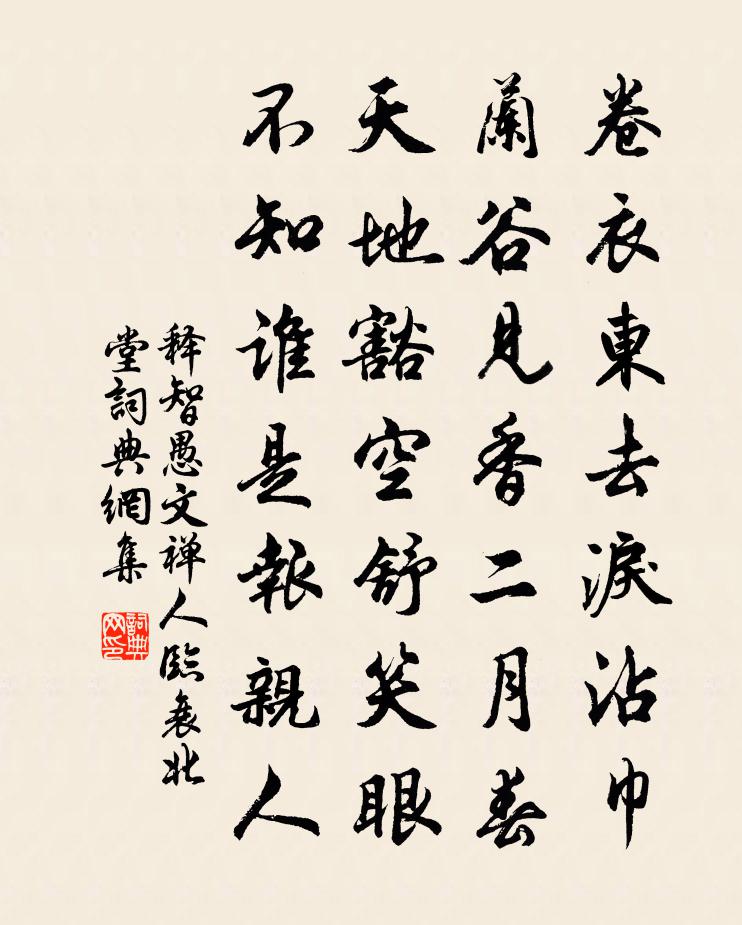 卷衣東去淚沾巾
蘭谷見香二月春
天地豁空舒笑眼
不知誰是報親人
释智愚文禅人臨衰北
堂詞典網集
詞典
网印